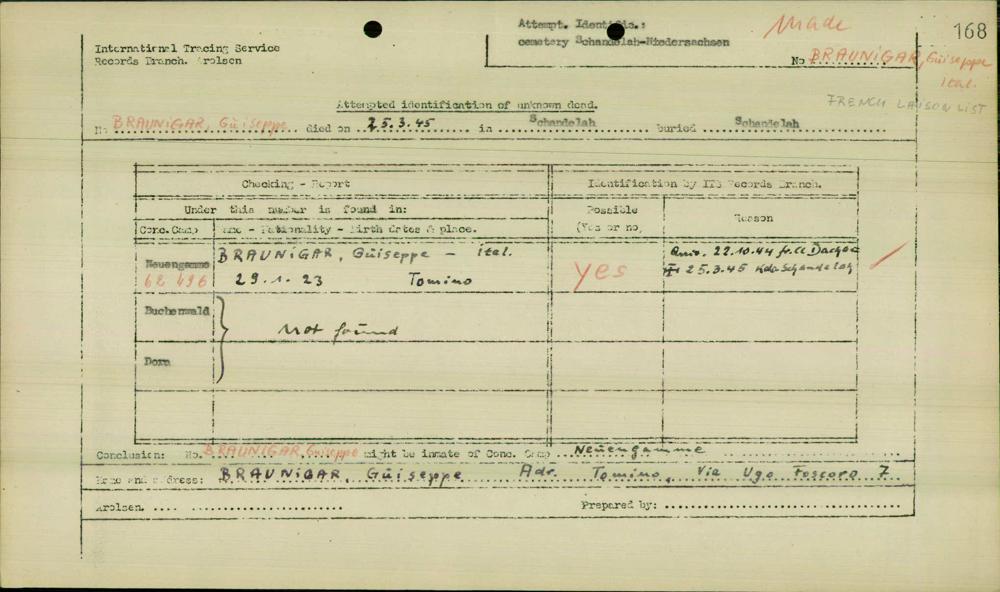 168
Made
Attempt. Identific.:
cemetery Schandelah-Niedersachsen
International Tracing Service
Records Branch. Arolsen
No BRAUNiGAR, Güiseppe
ital.
FRENCH LAISON LIST
Attempted identification of unknown dead.
No BRAUNiGAR, Güiseppe died on 25.3.45 in Schandelah buried Schandelah
Checking - Report
Identification by ITS Records Branch.
Under this number is found in:
Possible
(Yes or no)
Reason
Conc.Camp
Name - Nationality - Birth dates & place.
Neuengamme
62 496
BRAUNiGAR, Güiseppe - ital.
29.1.23 Tomino
yes
22.10.44 fr. CC Dachau
25.3.45 Kdo Schandelah
Buchenwald
Not found
Dora
Conclusion: No. BRAUNiGAR, Güiseppe might be inmate of Conc. Camp Neüengamme
Name and address: BRAUNiGAR, Güiseppe Adr. Tomino, Via Ugo Foscoro 7
Arolsen,
Prepared by: